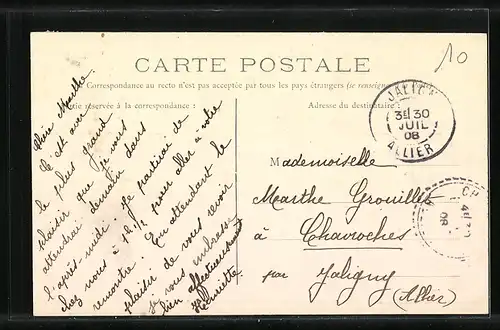 10
CARTE POSTALE
Correspondance au recto n'est pas acceptée par tous les pays étrangers (se renseign
tie réservée à la correspondance :
Adresse du destinataire :
JALIGNY
3E 30
JUIL
08
ALLIER
CH
08
Chère Marthe
C'est avec
le plus grand
plaisir que je vous
attendrai demain dans
l'après-midi. Je partirai de
chez nous à 1h ½ pour aller à votre
rencontre. En attendant le
plaisir de vous revoir
je vous embrasse
bien affectueusement
Henriette
Mademoiselle
Marthe Grouillet
à Chavroches
par Jaligny
(Allier)